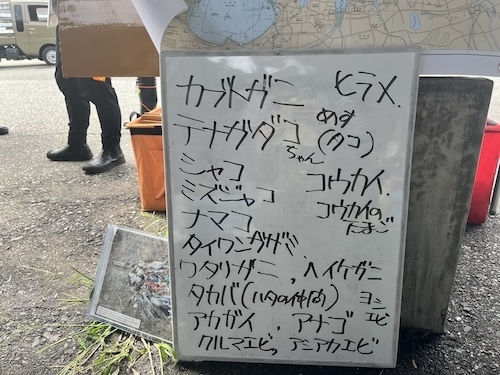 カブトガニ ヒラメ.
テナガダコ めす(タコ)
ちゃん
シャコ コウカイ.
ミズジャコ コウカイの
たまご
ナマコ
タイワンガザミ
ワタリガニ、ヘイケガニ
タカバ(ハタの仲間) ヨシ
エビ
アカガイ、アナゴ
クルマエビ、アシアカエビ